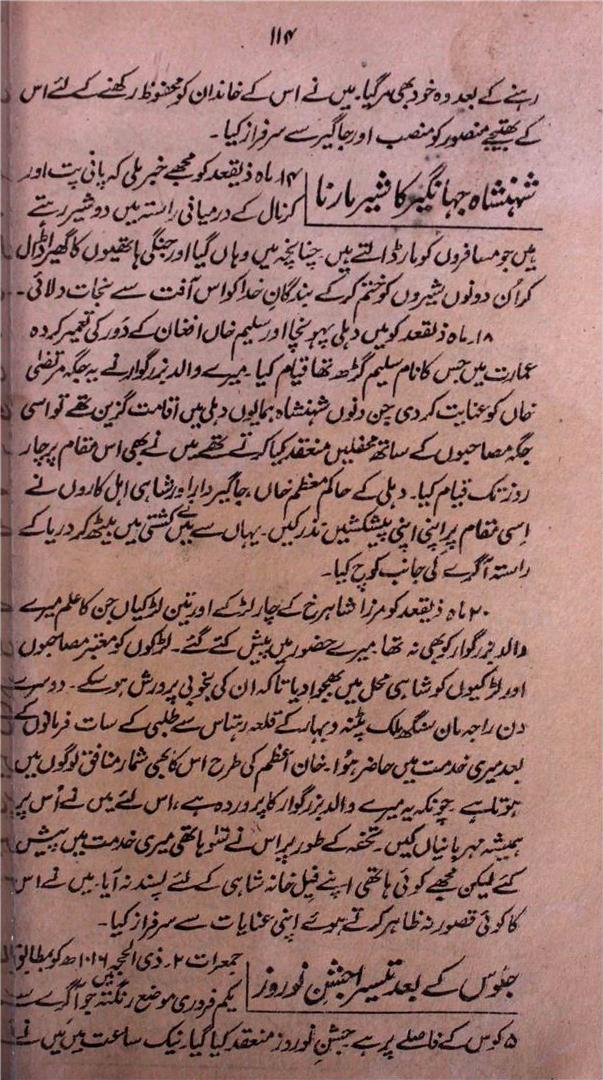 ۱۱۴
رہنے کے بعد وہ خود بھی مر گیا۔ میں نے اس کے خاندان کو محفوظ رکھنے کے لئے اس
کے بھتیجے منصور کو منصب اور جاگیر سے سرفراز کیا۔
شہنشاہ جہانگیر کا شیر مارنا
۱۴۔ ماہ ذیقعد کو مجھے خبر ملی کہ پانی پت اور
کرنال کے درمیانی راستہ میں دو شیر رہتے
ہیں جو مسافروں کو مار ڈالتے ہیں۔ چنانچہ میں وہاں گیا اور جنگی ہاتھیوں کا گھیرا ڈال
کر اُن دونوں شیروں کو ختم کر کے بندگانِ خدا کو اس آفت سے نجات دلائی۔
۱۸۔ ماہ ذیقعد کو میں دہلی پہونچا اور سلیم خاں افغان کے دَور کی تعمیر کردہ
عمارت میں جس کا نام سلیم گڑھ تھا قیام کیا۔ میرے والد بزرگوار نے یہ جگہ مرتضیٰ
خاں کو عنایت کر دی جن دنوں شہنشاہ ہمایوں دہلی میں اقامت گزین تھے تو اسی
جگہ مصاحبوں کے ساتھ محفلیں منعقد کیا کرتے تھے میں نے بھی اس مقام پر چار
روز تک قیام کیا۔ دہلی کے حاکم معظم خاں، جاگیردار اور شاہی اہل کاروں نے
اِسی مقام پر اپنی اپنی پیشکشیں نذر کیں۔ یہاں سے میں نے کشتی میں بیٹھ کر دریا کے
راستہ آگرے کی جانب کوچ کیا۔
۲۰ ماہ ذیقعد کو مرزا شاہرخ کے چار لڑکے اور تین لڑکیاں جن کا علم میرے
والد بزرگوار کو بھی نہ تھا میرے حضور میں پیش کئے گئے۔ لڑکوں کو معتبر مصاحبوں
اور لڑکیوں کو شاہی محل میں بھجوا دیا تاکہ ان کی بخوبی پرورش ہو سکے۔ دوسرے
دن راجہ مان سنگھ ملک پٹنہ و بہار کے قلعہ رہتاس سے طلبی کے سات فرمانوں کے
بعد میری خدمت میں حاضر ہوُا۔ خان اعظم کی طرح اس کا بھی شمار منافق لوگوں میں
ہوتا ہے۔ چونکہ یہ میرے والد بزرگوار کا پروردہ ہے، اس لئے میں نے اُس پر
ہمیشہ مہربانیاں کیں۔ تحفہ کے طور پر اس نے سَو ہاتھی میری خدمت میں پیش
کئے لیکن مجھے کوئی ہاتھی اپنے فیل خانہ شاہی کے لئے پسند نہ آیا۔ میں نے اس
کا کوئی قصور نہ ظاہر کرتے ہوئے اپنی عنایات سے سرفراز کیا۔
جلوس کے بعد تیسرا جشنِ نوروز
جمعرات ۲۔ ذی الحجہ ۱۰۱۶ھ کو بمطابق
یکم فروری موضع رنگتہ میں جو آگرے سے
۵ کوس کے فاصلے پر ہے جشنِ نوروز منعقد کیا گیا۔ نیک ساعت میں میں نے